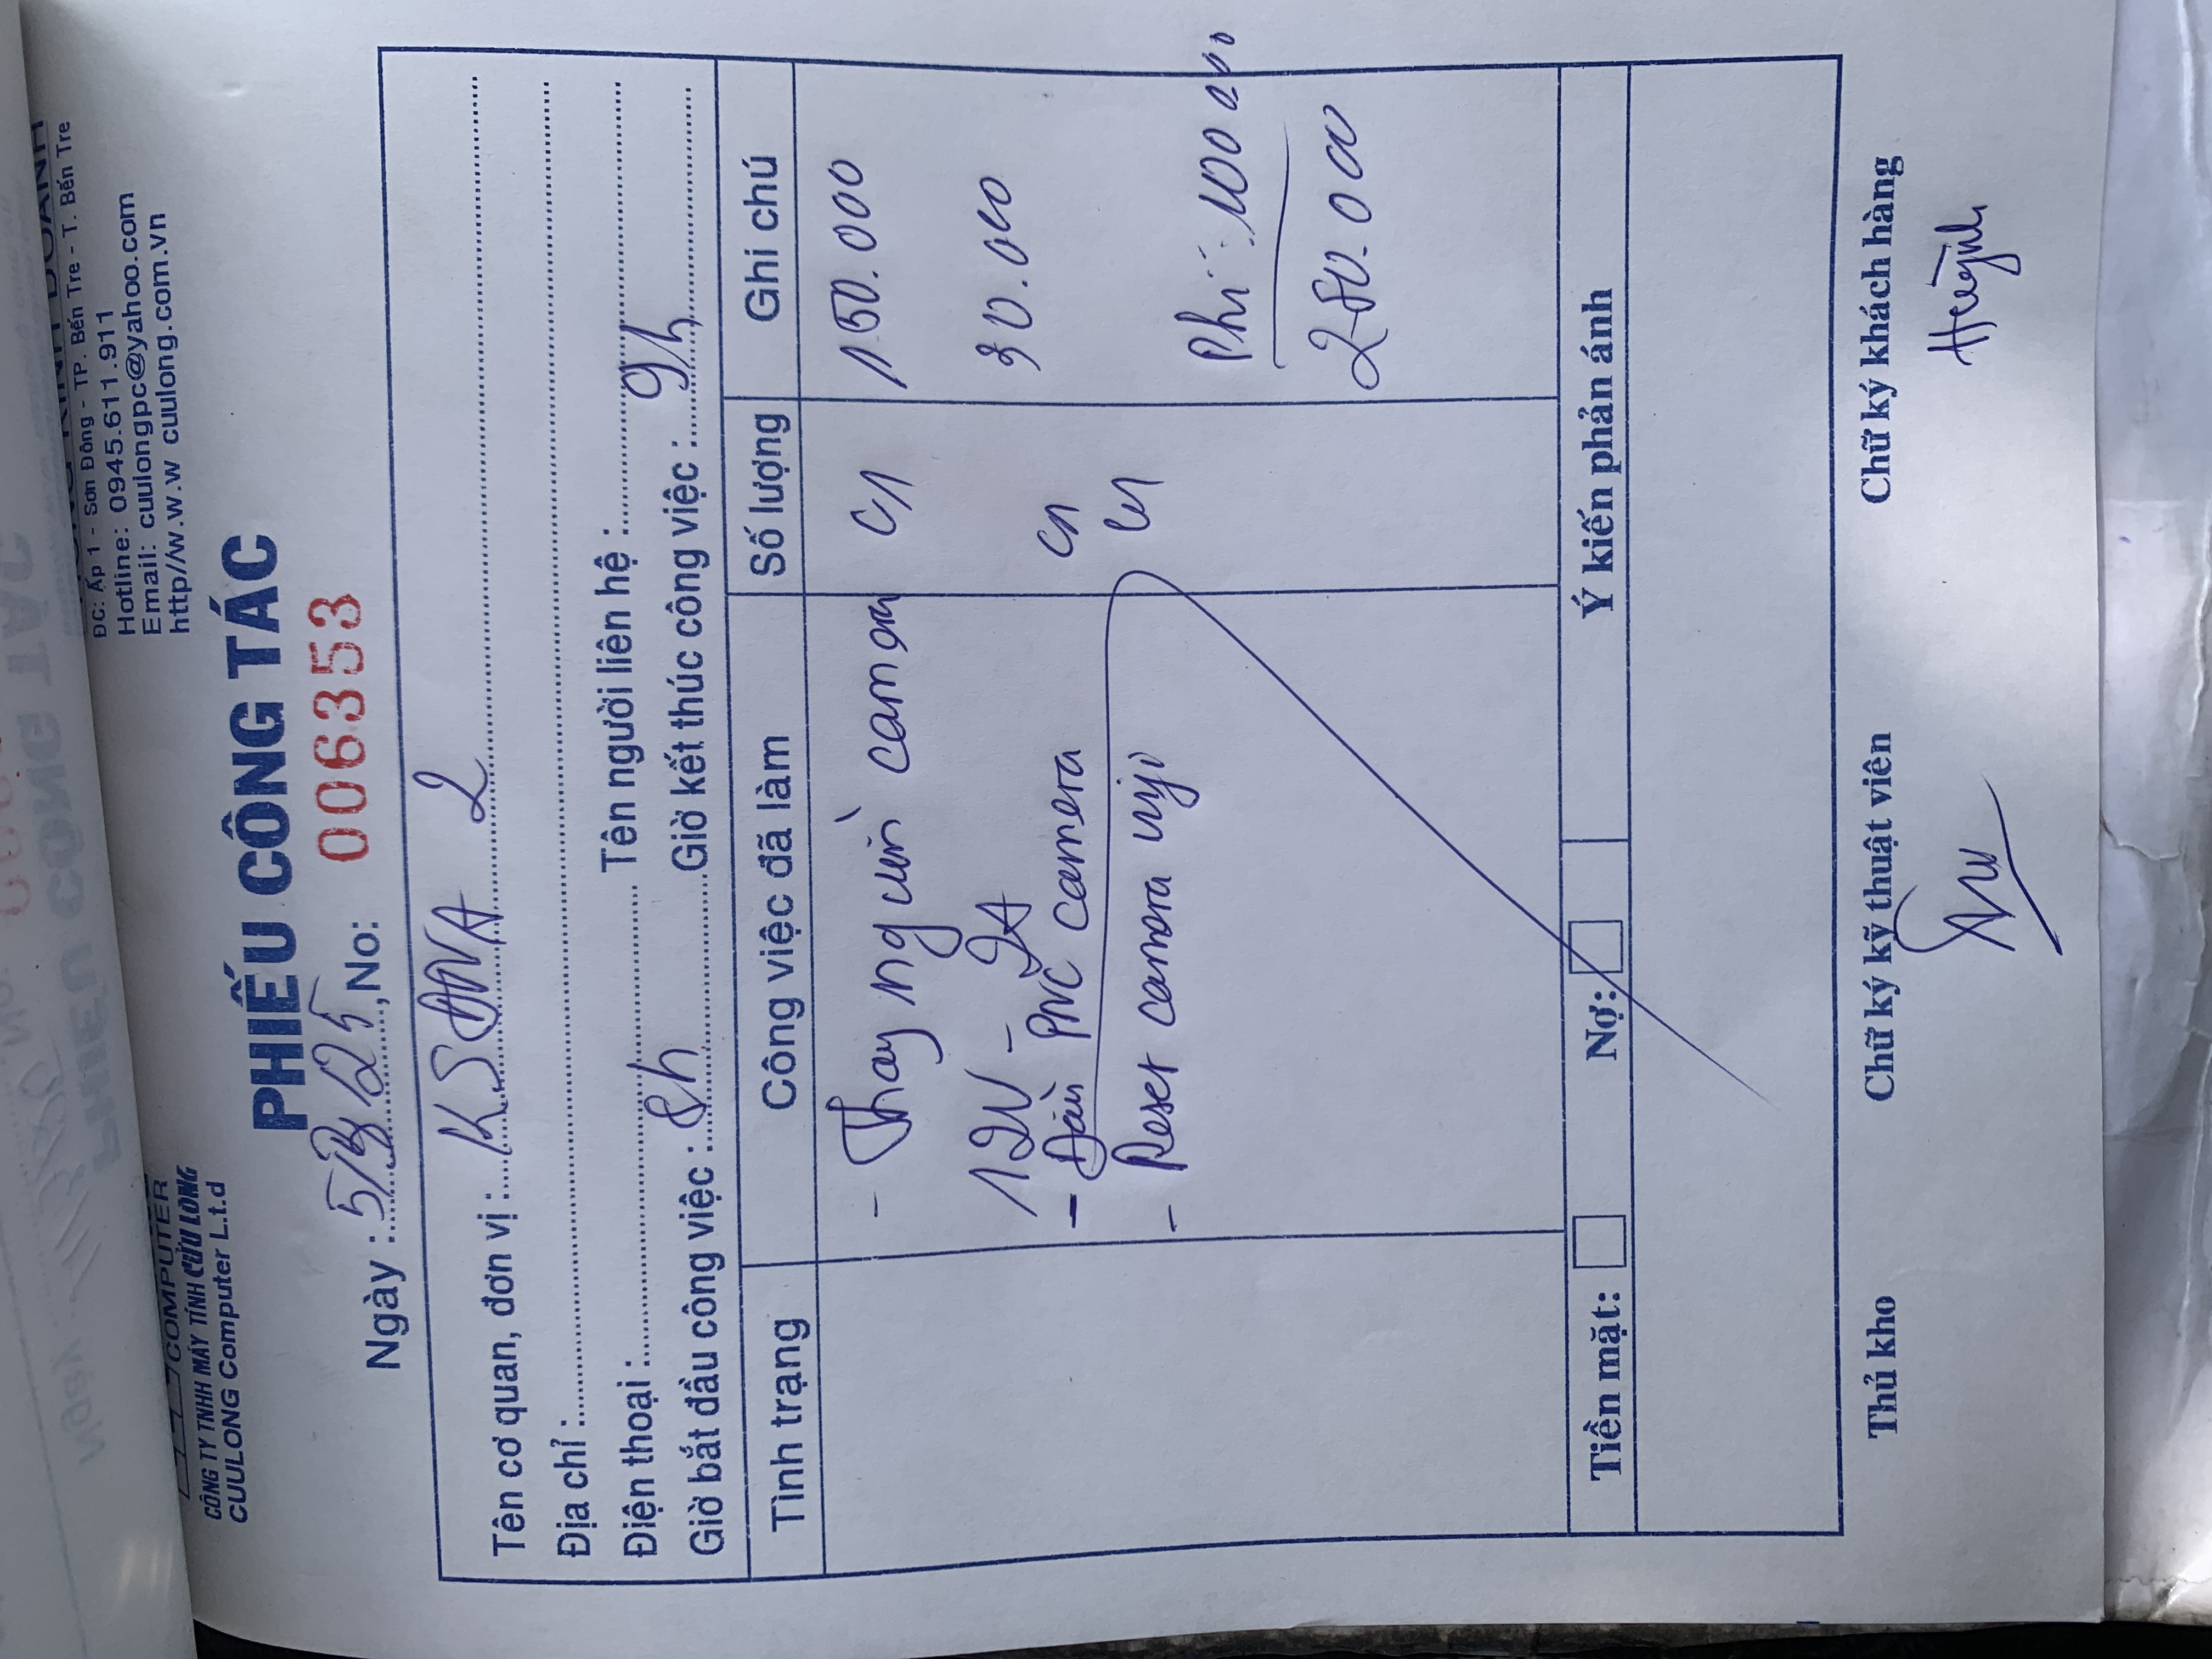 COMPUTER
CÔNG TY TNHH MÁY TÍNH CỬU LONG
CUULONG Computer L.t.d
ĐC: Ấp 1 - Sơn Đông - TP. Bến Tre - T. Bến Tre
Hotline: 0945.611.911
Email: cuulongpc@yahoo.com
http//w.w.w cuulong.com.vn
PHIẾU CÔNG TÁC
Ngày : ,No: 006353
Tên cơ quan, đơn vị : KS 2
Địa chỉ :
Điện thoại : Tên người liên hệ :
Giờ bắt đầu công việc : 8h Giờ kết thúc công việc : 9h
Tình trạng Công việc đã làm Số lượng Ghi chú
- Thay nguồn camera C1 150.000
12V - 2A 30.000
- Đàu PVC camera C1
- Reset camera wifi
Phí: 100.000
280.000
Tiền mặt: Nợ: Ý kiến phản ánh
Thủ kho Chữ ký kỹ thuật viên Chữ ký khách hàng
Huỳnh